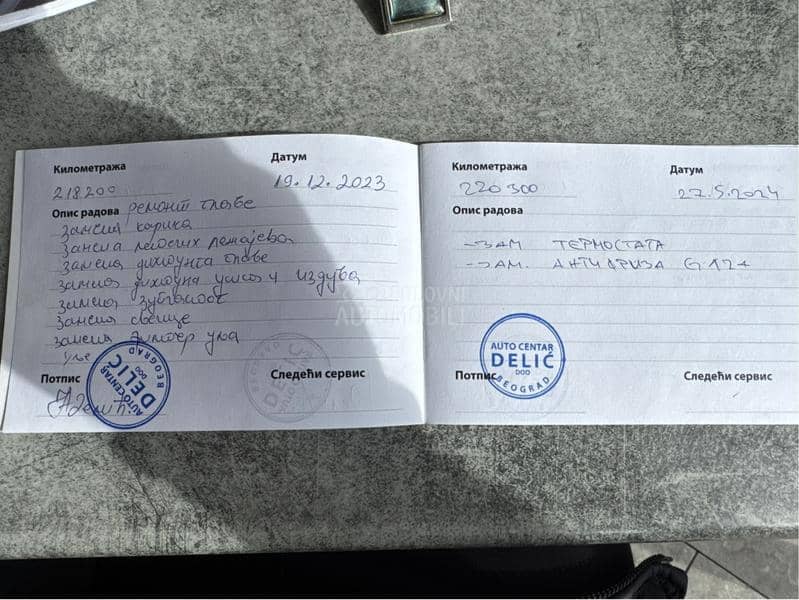 Километража
Датум
218200
19.12.2023
Опис радова ремонт главе
замена карика
замена летећих лежајева
замена дихтунга главе
замена дихтунга усиса и издува
замена зупчастог
замена свећице
замена филтер уља
уље
AUTO CENTAR
DELIĆ
DOO
BEOGRAD
Потпис
Следећи сервис
Километража
Датум
220 300
27.5.2024
Опис радова
-ЗАМ ТЕРМОСТАТА
-ЗАМ. АНТИФРИЗА G12+
AUTO CENTAR
DELIĆ
DOO
BEOGRAD
Потпис
Следећи сервис
POLOVNI
AUTOMOBILI